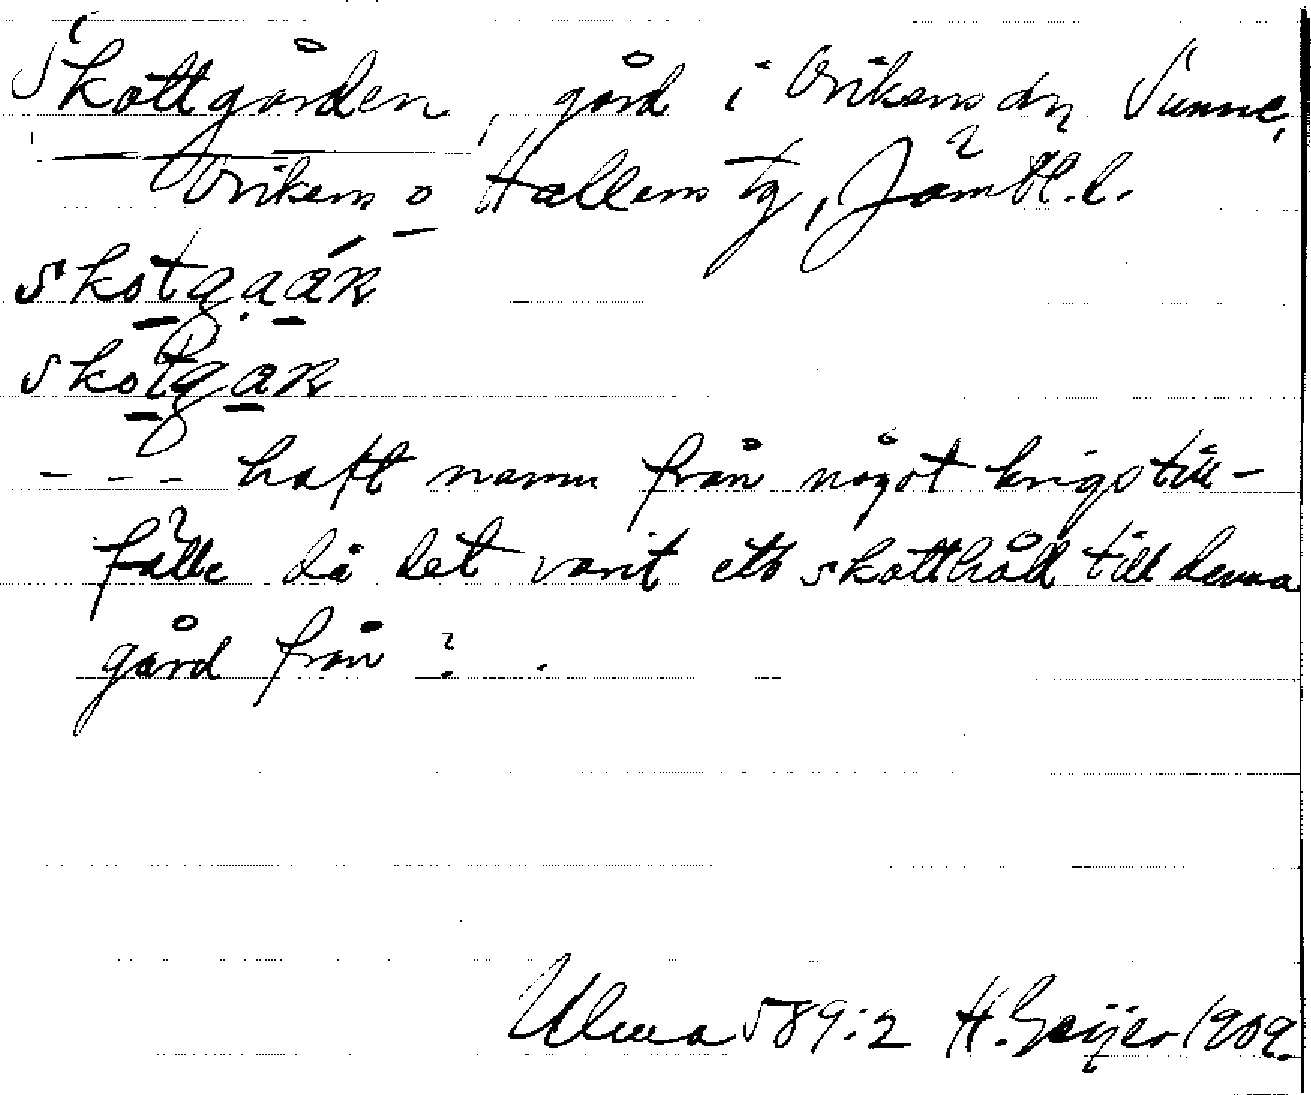 Skottgården, gård i Orikens dn Sunne,
Orikens o Hallens tg, Jämtl. l.
skotgaaɴ
skotgaɴ
--- haft namn från något krigstill-
fälle då det varit ett skotthåll till denna
gård från ? .
Ulma 589:2 H. Geijer 1909.